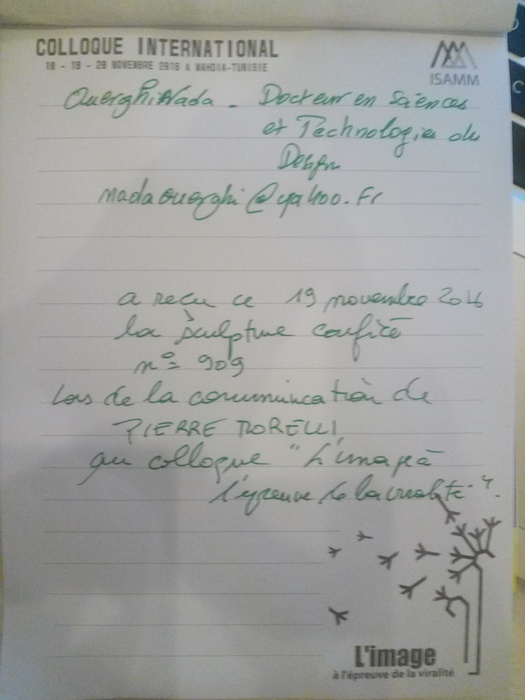 COLLOQUE INTERNATIONAL
18 - 19 - 20 NOVEMBRE 2016 A MAHDIA-TUNISIE
ISAMM
Ouerghi Nada - Docteur en Sciences
et Technologies du
Design
nadaouerghi@yahoo.fr
a reçu ce 19 novembre 2016
la sculpture confiée
n° 909
Lors de la communication de
PIERRE MORELLI
au colloque "L'image à
l'épreuve de la viralité".
L'image
à l'épreuve de la viralité